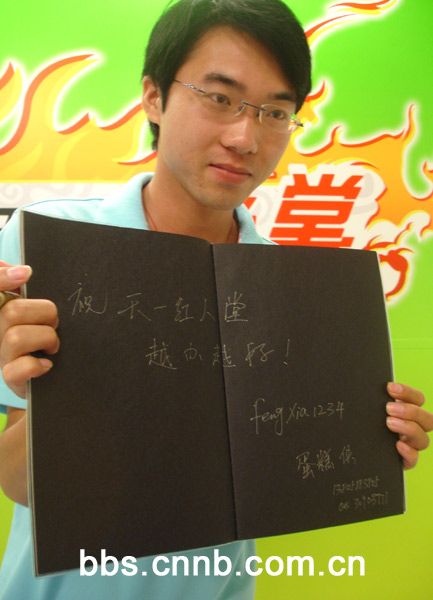 堂
祝天一红人堂
越办越好!
fengxia1234
蛋糕侠
bbs.cnnb.com.cn